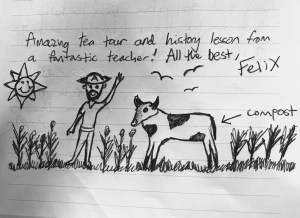 Amazing tea tour and history lesson from
a fantastic teacher! All the best,
Felix
compost